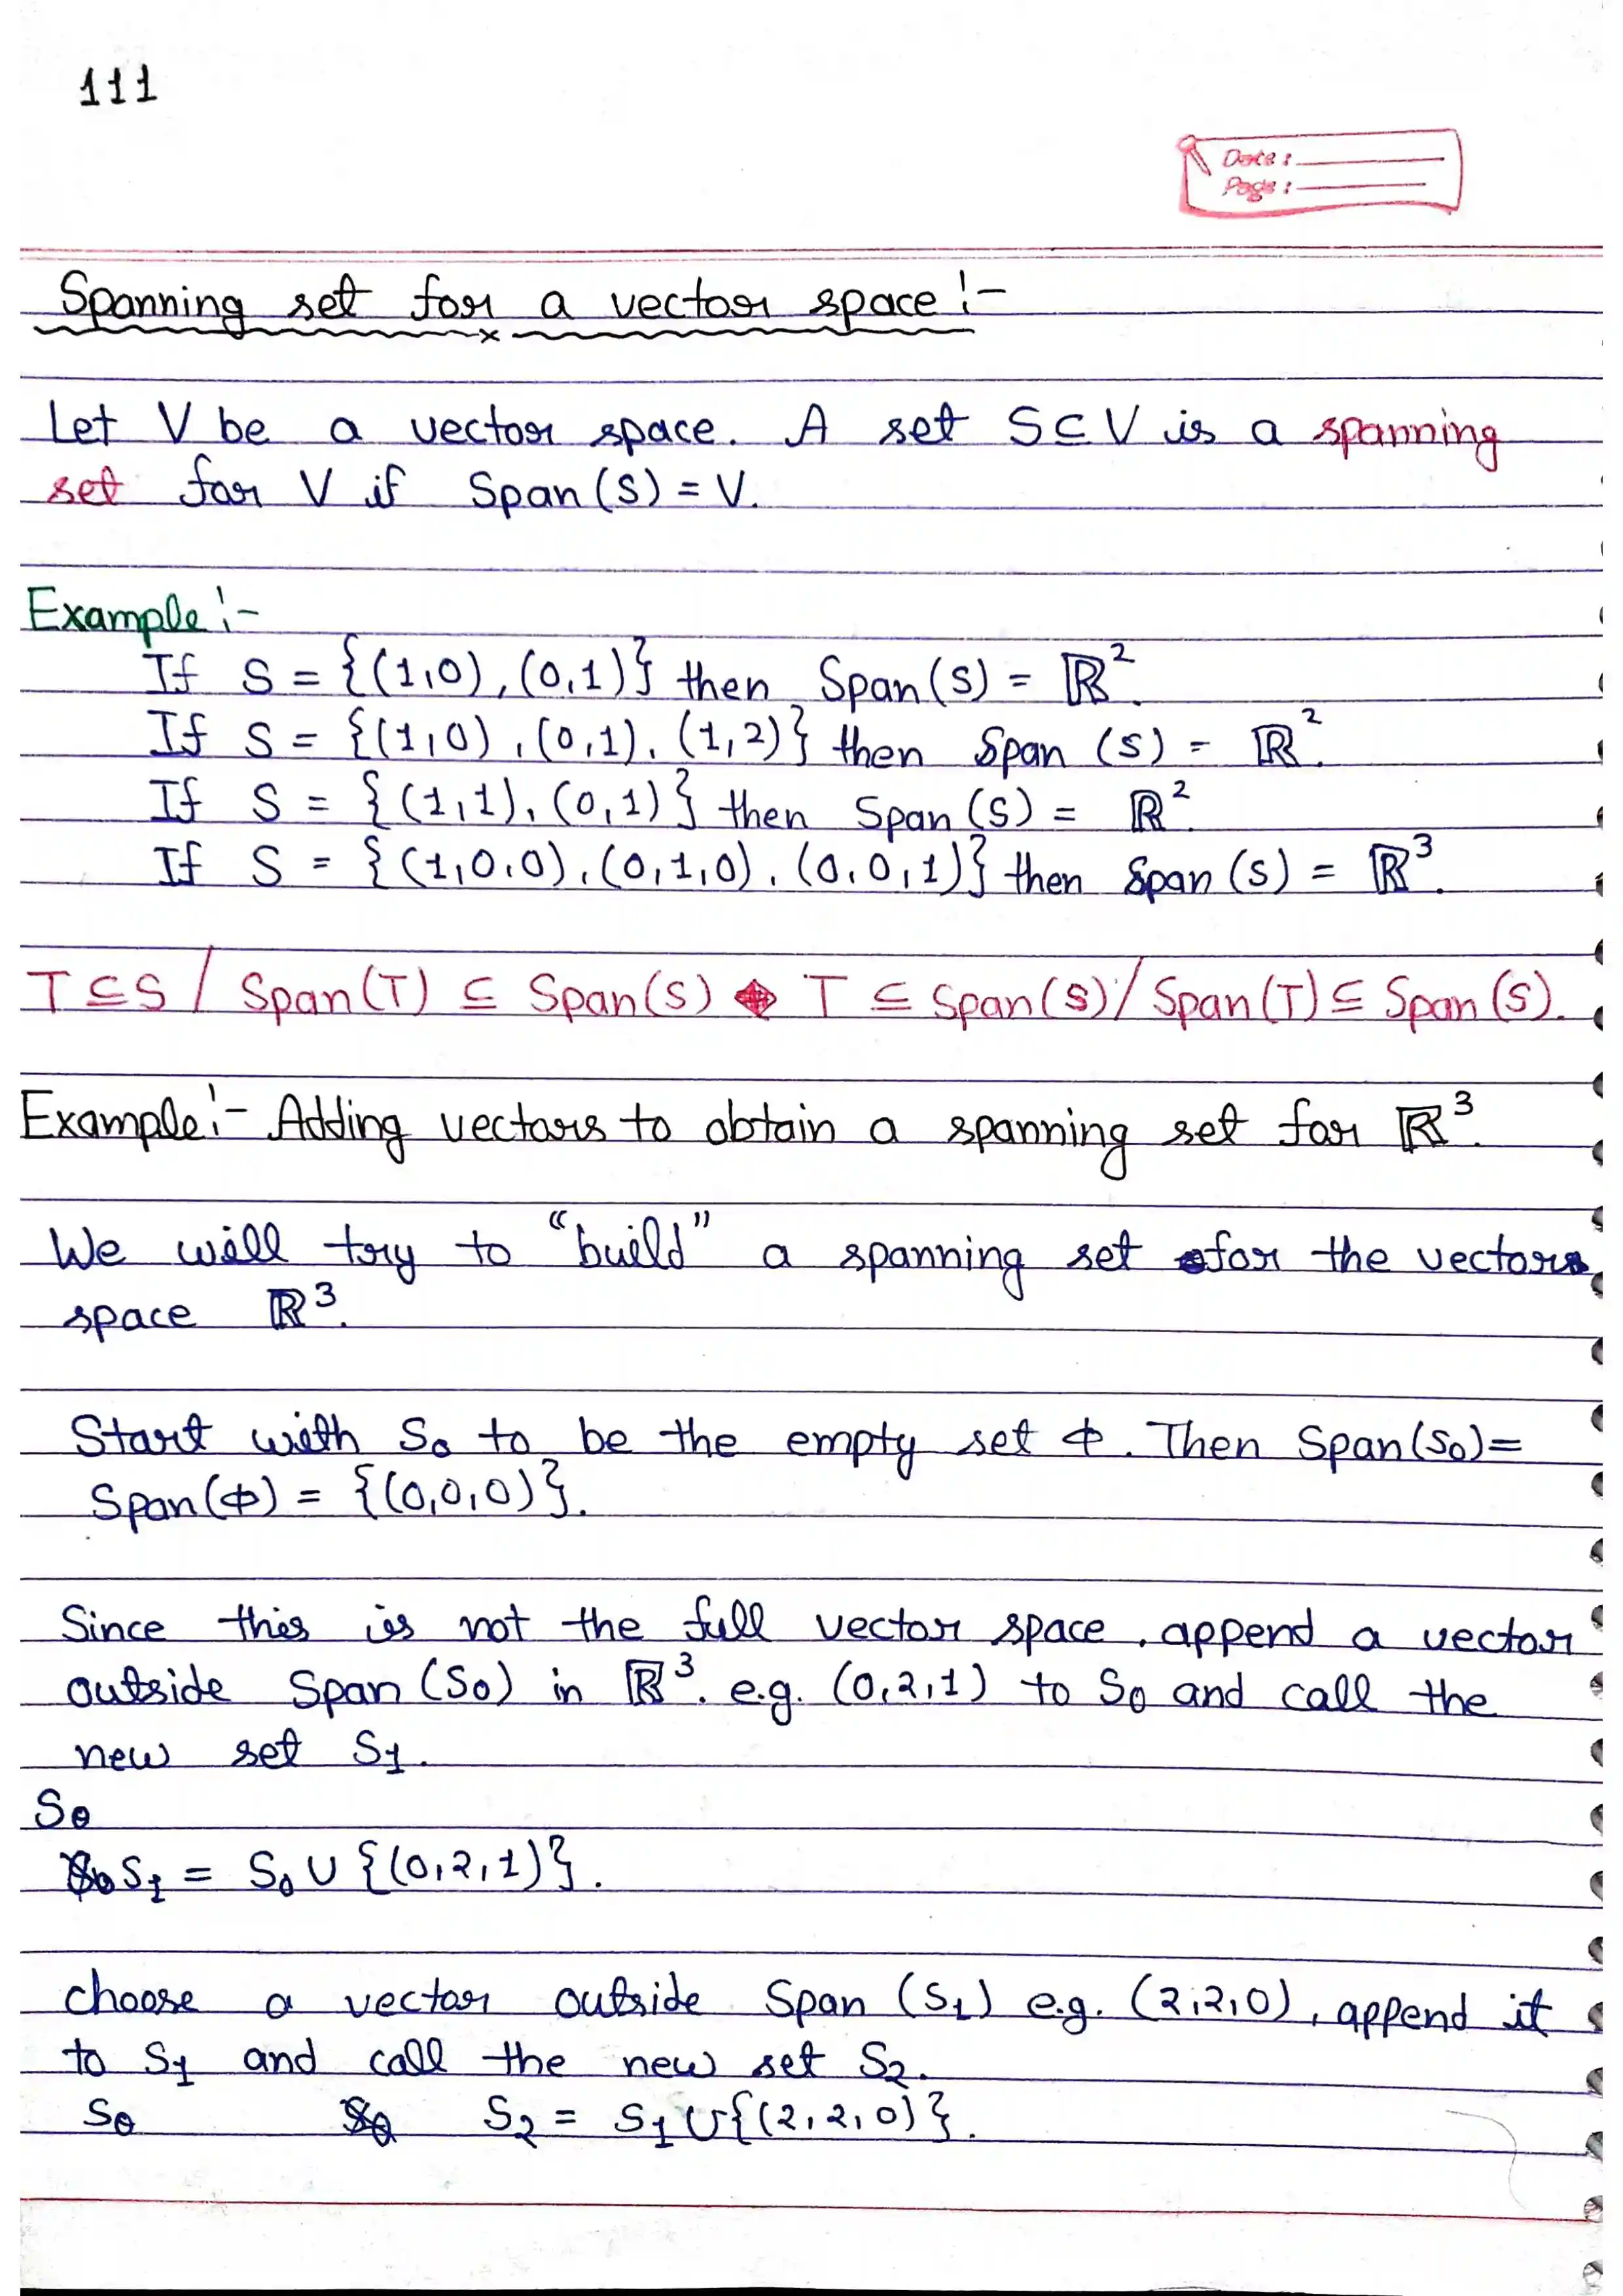 111
Date :
Page :
Spanning set for a vector space :-
Let V be a vector space. A set S ⊆ V is a spanning
set for V if Span (S) = V.
Example :-
If S = {(1,0), (0,1)} then Span (S) = ℝ².
If S = {(1,0), (0,1), (1,2)} then Span (S) = ℝ².
If S = {(1,1), (0,1)} then Span (S) = ℝ².
If S = {(1,0,0), (0,1,0), (0,0,1)} then Span (S) = ℝ³.
T ⊆ S / Span (T) ⊆ Span (S) ◆ T ⊆ Span (S) / Span (T) ⊆ Span (S).
Example :- Adding vectors to obtain a spanning set for ℝ³.
We will try to “build” a spanning set for the vector
space ℝ³.
Start with S₀ to be the empty set φ. Then Span (S₀) =
Span (φ) = {(0,0,0)}.
Since this is not the full vector space, append a vector
outside Span (S₀) in ℝ³. e.g. (0,2,1) to S₀ and call the
new set S₁.
So
S₁ = S₀ ∪ {(0,2,1)}.
choose a vector outside Span (S₁) e.g. (2,2,0), append it
to S₁ and call the new set S₂.
So S₂ = S₁ ∪ {(2,2,0)}.